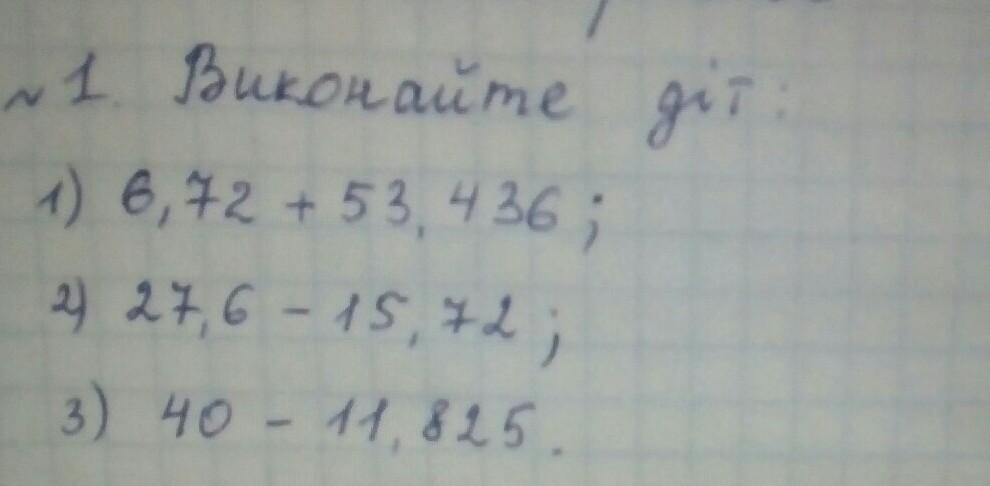 №1. Виконайте дії:
1) 6,72 + 53,436;
2) 27,6 - 15,72;
3) 40 - 11,825.